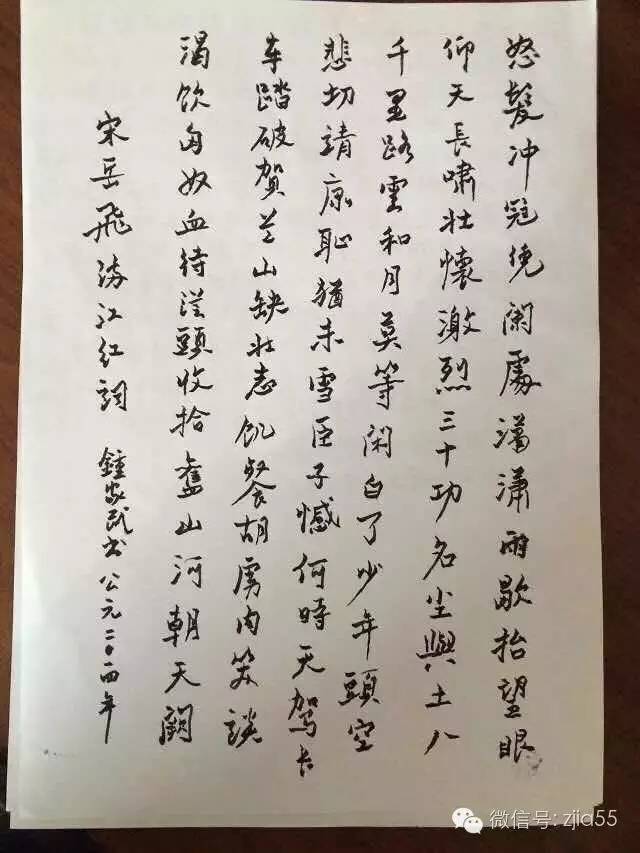 怒髮冲冠凭闌處瀟瀟雨歇抬望眼
仰天長嘯壯懷激烈三十功名尘與土八
千里路雲和月莫等閑白了少年頭空
悲切靖康恥猶未雪臣子憾何時天駕长
车踏破賀兰山缺壮志飢餐胡虏肉笑談
渴饮匈奴血待從頭收拾舊山河朝天闕
宋岳飛滿江红詞 鍾家武书 公元二〇一四年
微信号: zjia55